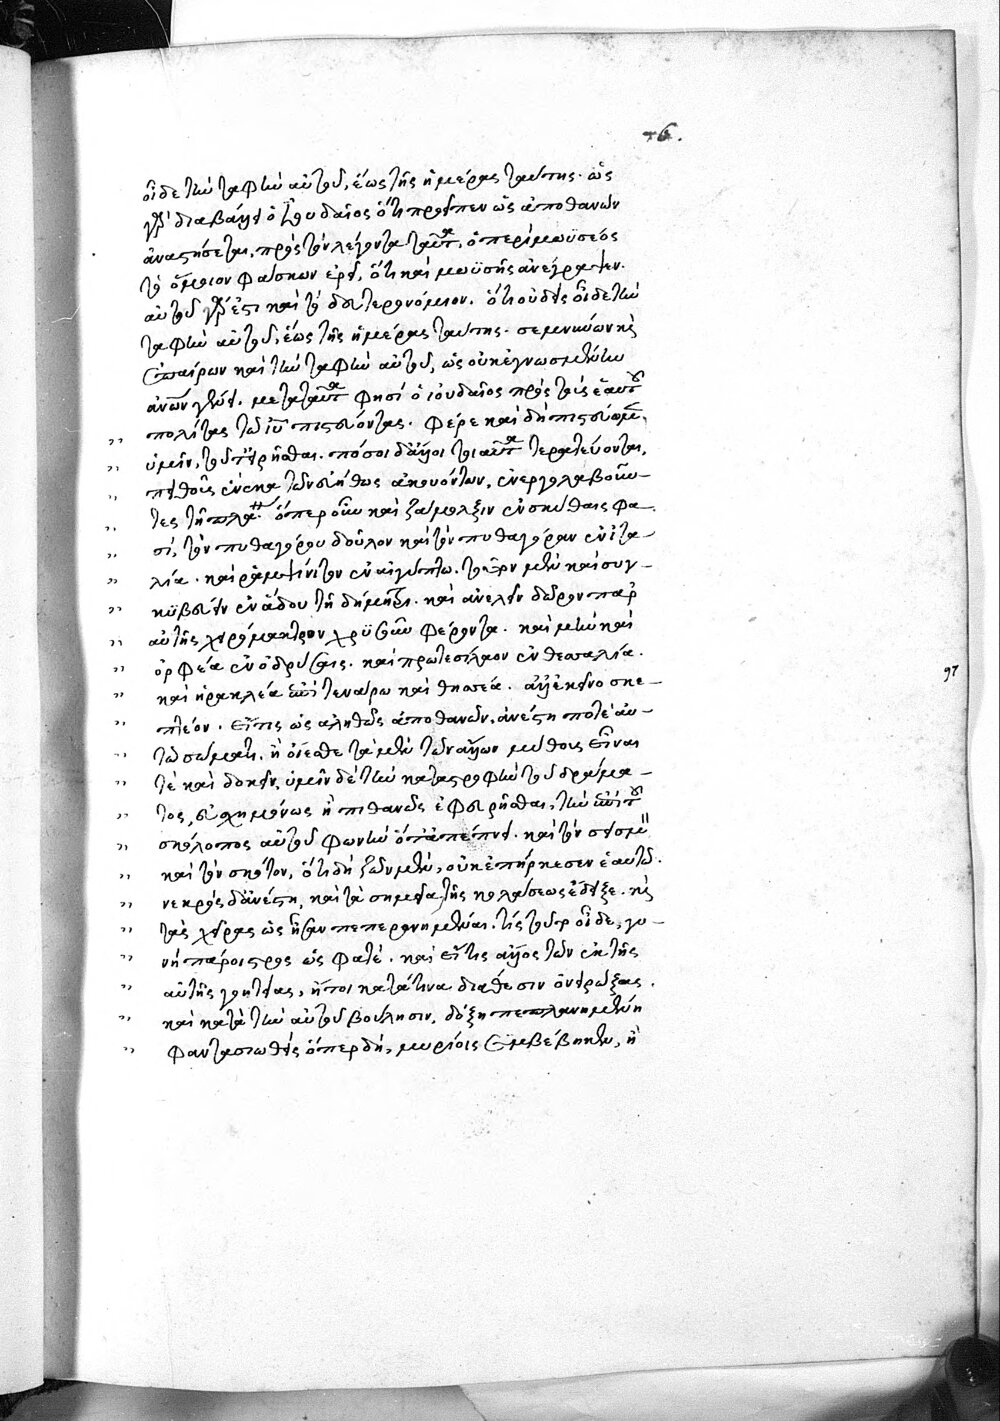 +6.
οἶδε τὴν ταφὴν αὐτοῦ, ἕως τῆς ἡμέρας ταύτης· ὡς
γὰρ διαβάλλει ὁ Ἰουδαῖος ὅτι προεῖπεν ὡς ἀποθανὼν
ἀναστήσεται, πρὸς τὸν λέγοντα ταῦτα, ὁ περὶ μωϋσέος
τὸ ὅμοιον φάσκων ἐρεῖ, ὅτι καὶ μωϋσῆς ἀνέγραψεν.
αὐτοῦ γάρ ἐστι καὶ τὸ δευτερονόμιον. ὅτι οὐδεὶς οἶδε τὴν
ταφὴν αὐτοῦ, ἕως τῆς ἡμέρας ταύτης· σεμνύνων καὶ
ἐπαίρων καὶ τὴν ταφὴν αὐτοῦ, ὡς οὐκ ἐγνωσμένην
ἀνων γένει. μετὰ ταῦτα φησὶ ὁ ἰουδαῖος πρὸς τοὺς ἑαυτοῦ
πολίτας τῷ ιυ πιστεύοντας. φέρε καὶ δὴ πιστεύωμεν
ὑμῖν, τοῦτ' εἰρῆσθαι. πόσοι δ' ἄλλοι τοιαῦτα τερατεύονται,
πείθοῦς ἕνεκα τῶν εὐήθως ἀκουόντων, ἐνεργολαβοῦν-
τες τῇ πλάνῃ· ὅπερ οὖν καὶ ζάμολξιν ἐν σκύθαις φα-
σί, τὸν πυθαγόρου δοῦλον καὶ τὸν πυθαγόραν ἐν ἰτα-
λίᾳ. καὶ ῥαμψίνιτον ἐν αἰγύπτῳ. τοῦτον μὲν καὶ συγ-
κυβεύειν ἐν ἅδου τῇ δήμητρι. καὶ ἀνελθεῖν δῶρον παρ'
αὐτῆς χειρόμακτρον χρυσοῦν φέροντα. καὶ μὴν καὶ
ὀρφέα ἐν ὀδρύσαις. καὶ πρωτεσίλαον ἐν θεσσαλίᾳ.
καὶ ἡρακλέα ἐπὶ τενάρῳ καὶ θησέα. ἀλλ' ἐκεῖνο σκε-
πτέον. εἴ τις ὡς ἀληθῶς ἀποθανὼν, ἀνέστη ποτὲ αὐ-
τῷ σώματι. ἢ οἴεσθε τὰ μὲν τῶν ἄλλων μύθους εἶναι
τὲ καὶ δοκεῖν, ὑμῖν δὲ τὴν καταστροφὴν τοῦ δράμα-
τος, εὐσχημόνως ἢ πιθανῶς ἐφευρῆσθαι, τὴν ἐπὶ τοῦ
σκόλοπος αὐτοῦ φωνὴν ὅτ' ἀπέπνει. καὶ τὸν σεισμὸν
καὶ τὸν σκότον, ὅτι δὴ ζῶν μὲν, οὐκ ἐπήρκεσεν ἑαυτῷ.
νεκρὸς δ' ἀνέστη, καὶ τὰ σημεῖα τῆς κολάσεως ἔδειξε. καὶ
τὰς χεῖρας ὡς ἦσαν πεπερονημέναι. τίς τοῦτο εἶδε, γυ-
νὴ πάροιστρος ὡς φατέ. καὶ εἴ τις ἄλλος τῶν ἐκ τῆς
αὐτῆς γοητείας, ἤτοι κατά τινα διάθεσιν ὀνειρώξας.
καὶ κατὰ τὴν αὐτοῦ βούλησιν, δόξῃ πεπλανημένῃ
φαντασιωθεὶς ὅπερ δὴ, μυρίοις συμβέβηκεν, ἢ
97